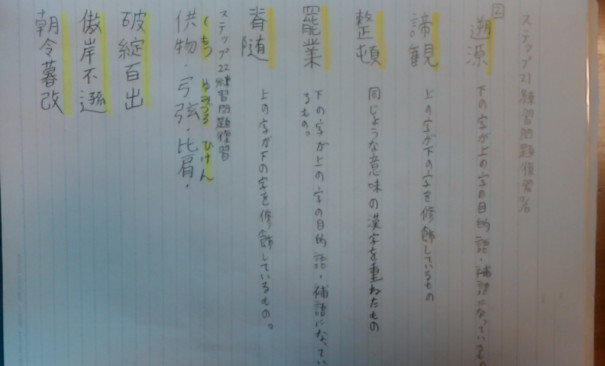 ステップ21練習問題復習
2
遡源 下の字が上の字の目的語・補語になっている
諦観 上の字が下の字を修飾しているもの
整頓 同じような意味の漢字を重ねたもの
罷業 下の字が上の字の目的語・補語になってい
るもの。
脊随 上の字が下の字を修飾しているもの。
ステップ22練習問題復習
くもつ ゆみづる ひけん
供物・弓弦・比肩・
破綻百出
傲岸不遜
朝令暮改